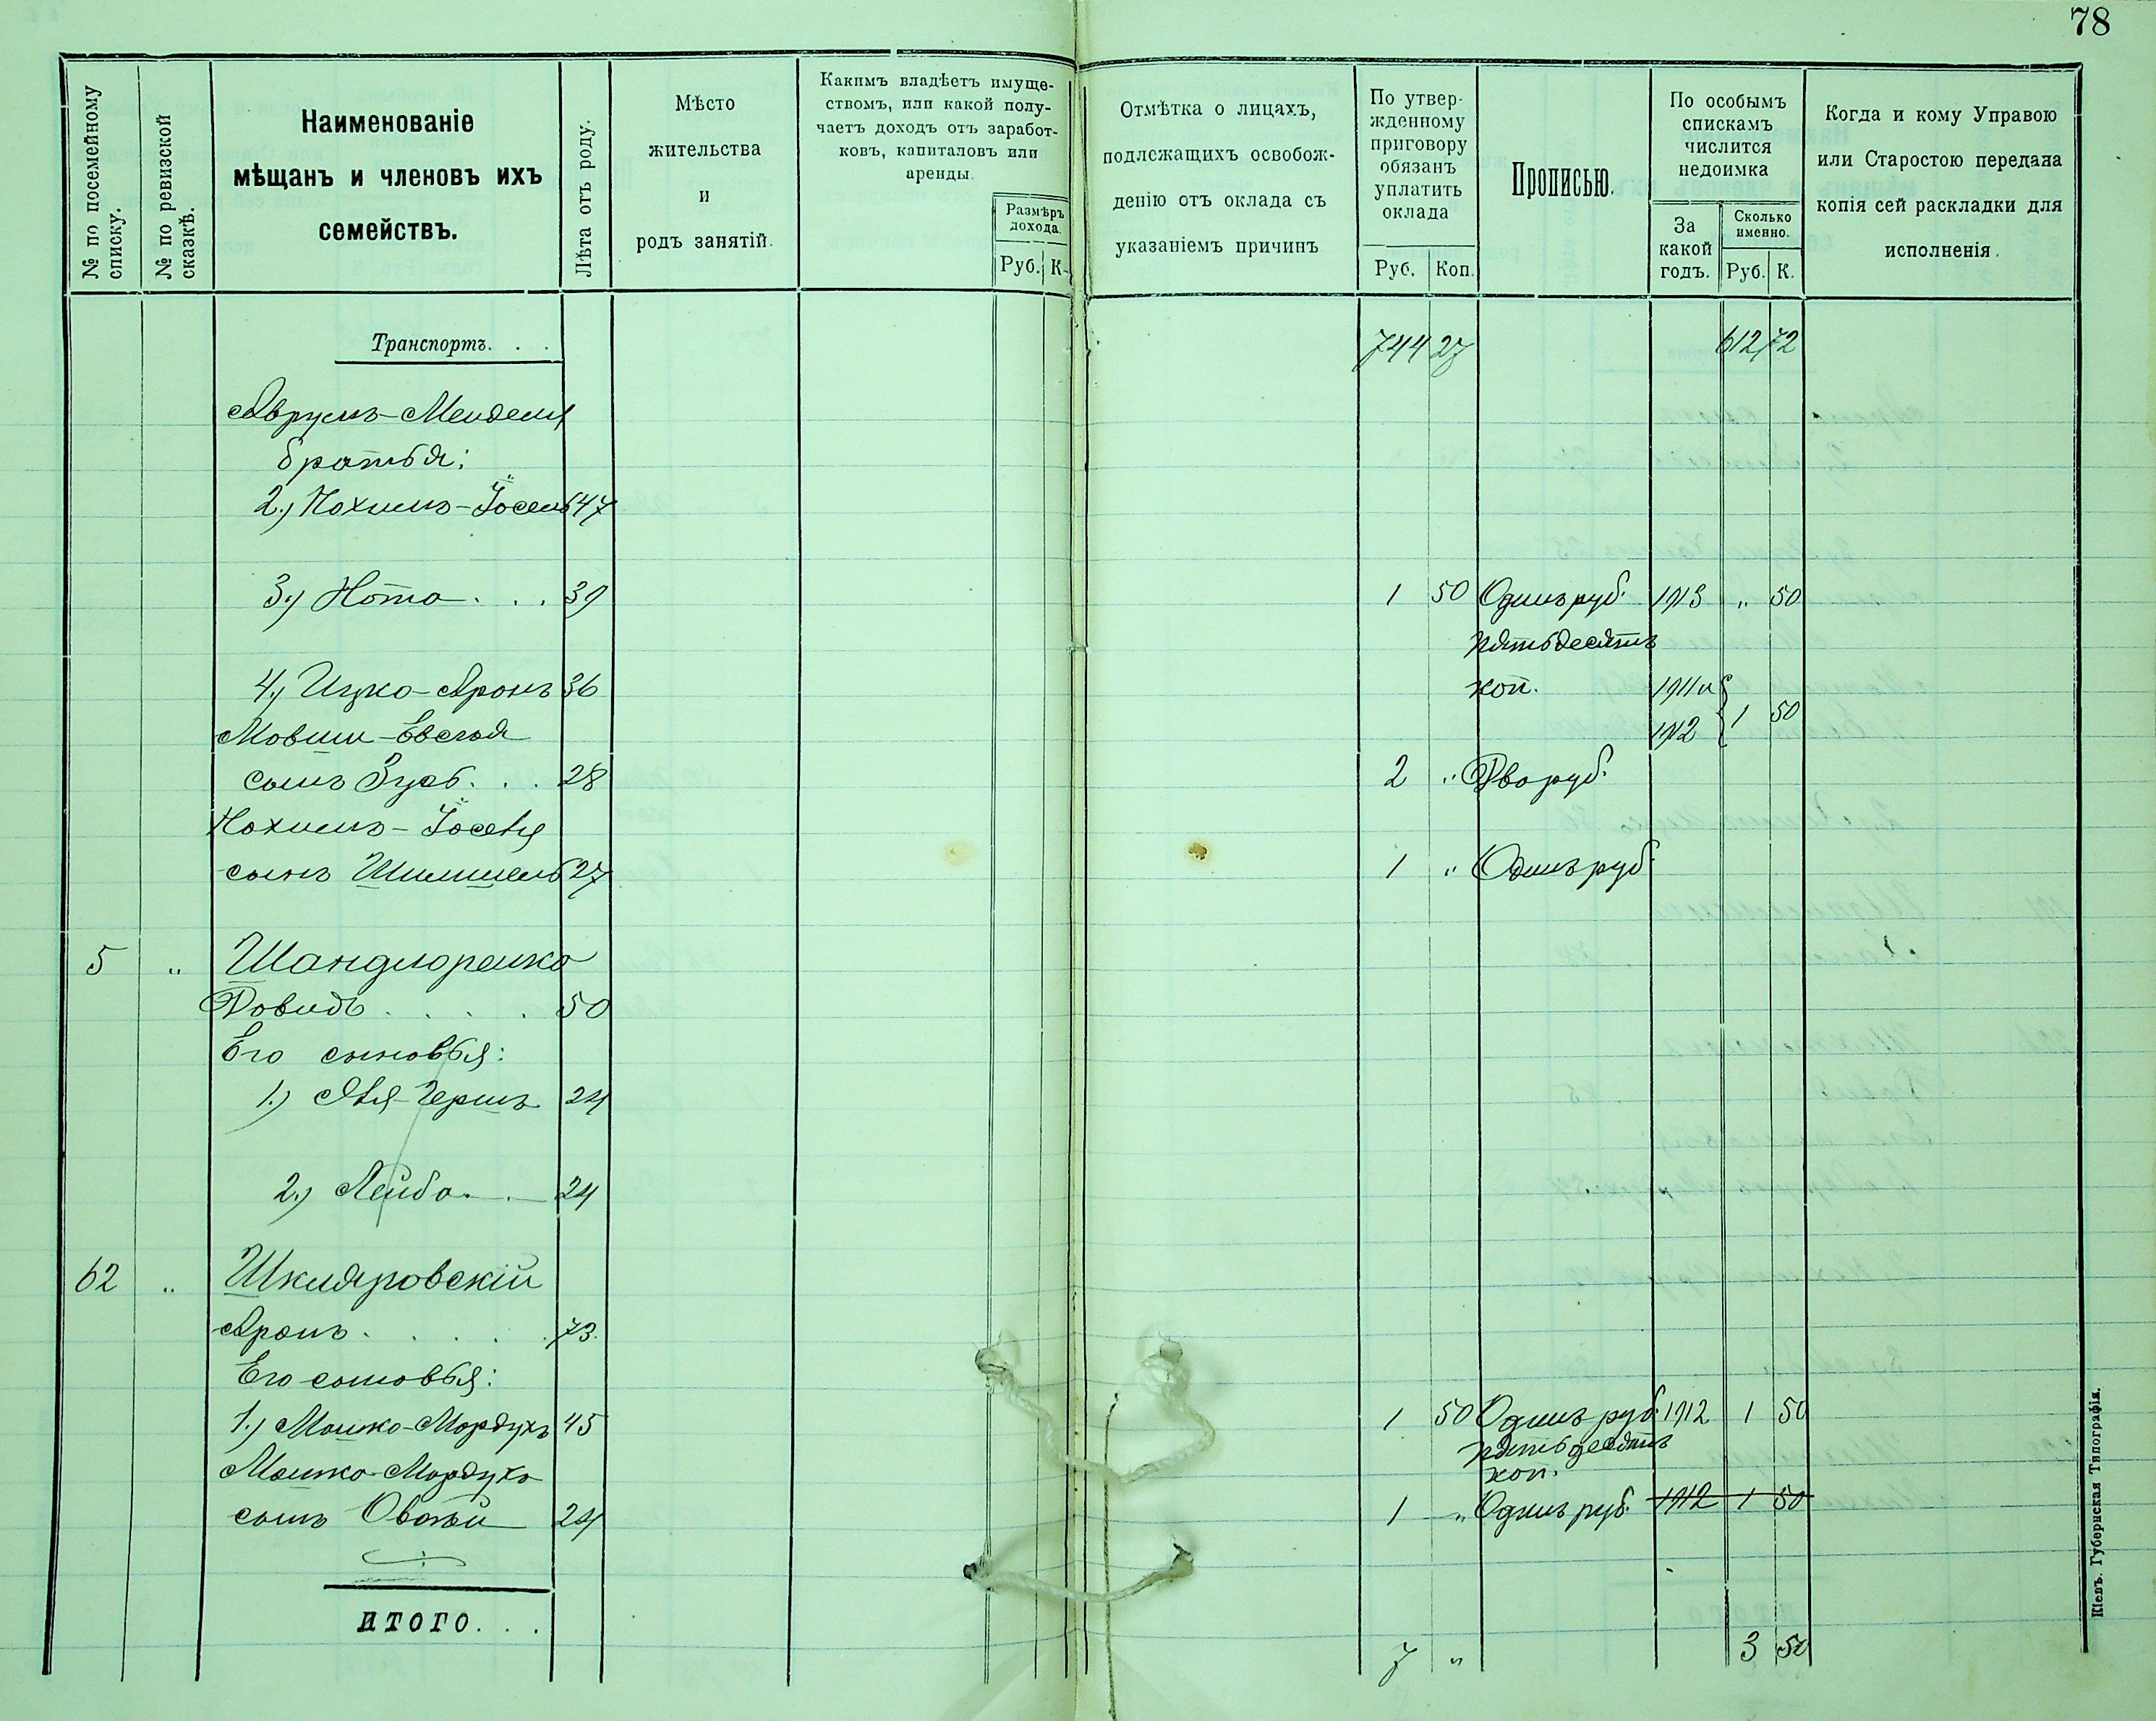 78
№ по посемейному списку.
№ по ревизской сказкѣ.
Наименованіе
мѣщанъ и членовъ ихъ
семействъ.
Лѣта отъ роду.
Мѣсто
жительства
и
родъ занятій.
Какимъ владѣетъ имуще-
ствомъ, или какой полу-
чаетъ доходъ отъ заработ-
ковъ, капиталовъ или
аренды.
Размѣръ
дохода.
Руб. К.
Отмѣтка о лицахъ,
подлежащихъ освобож-
денію отъ оклада съ
указаніемъ причинъ
По утвер-
жденному
приговору
обязанъ
уплатить
оклада
Руб. Коп.
Прописью.
По особымъ
спискамъ
числится
недоимка
За
какой
годъ.
Сколько
именно.
Руб. К.
Когда и кому Управою
или Старостою передана
копія сей раскладки для
исполненія.
Транспортъ. . . 744 27 612 72
Аврумъ-Менделя
братья:
2.) Нохимъ-Іосель 47
3.) Нота . . . 39 1 50 Одинъ руб. 1913 " 50
пятьдесятъ
4.) Ицко-Аронъ 36 коп. 1911 и
Мовши-Евсея 1912 1 50
сынъ Зусь . . . 28 2 " Два руб.
Нохимъ-Іосея
сынъ Шимшель 27 1 " Одинъ руб.
5 " Шандлоренко
Довидъ . . . . 50
Его сыновья:
1.) Айя-Гершъ 24
2.) Лейба . . 24
62 " Шкляровскій
Аронъ . . . . . 73.
Его сыновья:
1.) Мошко-Мордухъ 45 1 50 Одинъ руб. 1912 1 50
пятьдесятъ
коп.
Мошко-Мордуха
сынъ Овшій 24 1 " Одинъ руб. 1912 1 50
ИТОГО. . . 7 " 3 50
Кіевъ. Губернская Типографія.